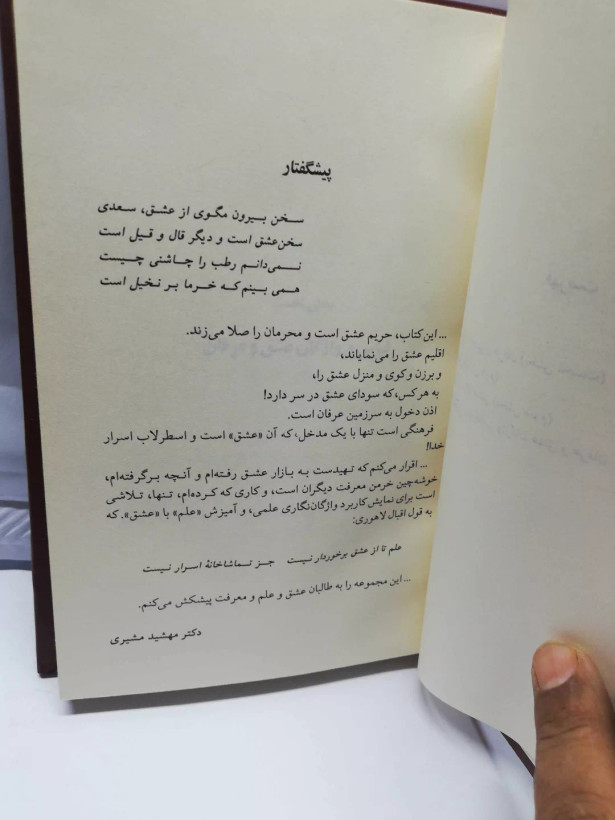 پیشگفتار
سخن بیرون مگوی از عشق، سعدی
سخن عشق است و دیگر قال و قیل است
نمی‌دانم رطب را چاشنی چیست
همی بینم که خرما بر نخیل است
... این کتاب، حریم عشق است و محرمان را صلا می‌زند.
اقلیم عشق را می‌نمایاند،
و برزن و کوی و منزل عشق را،
به هر کس، که سودای عشق در سر دارد!
اذن دخول به سرزمین عرفان است.
فرهنگی است تنها با یک مدخل، که آن «عشق» است و اسطرلاب اسرار
خدا!
... اقرار می‌کنم که تهیدست به بازار عشق رفته‌ام و آنچه برگرفته‌ام،
خوشه‌چین خرمن معرفت دیگران است، و کاری که کرده‌ام، تنها، تلاشی
است برای نمایش کاربرد واژگان‌نگاری علمی، و آمیزش «علم» با «عشق». که
به قول اقبال لاهوری:
علم تا از عشق برخوردار نیست جز تماشاخانهٔ اسرار نیست
... این مجموعه را به طالبان عشق و علم و معرفت پیشکش می‌کنم.
دکتر مهشید مشیری